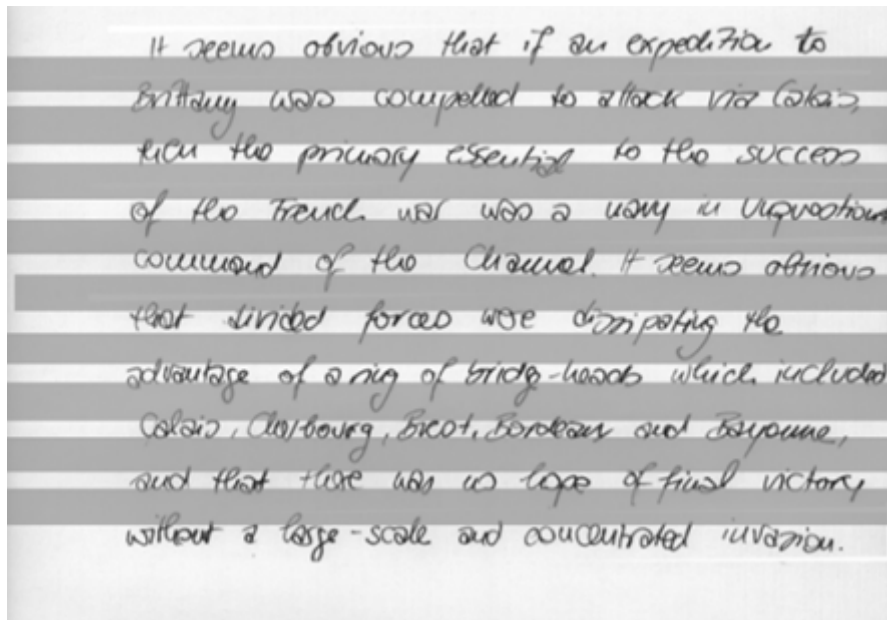 It seems obvious that if an expedition to
Brittany was compelled to attack via Calais,
then the primary essential to the success
of the French war was a navy in
command of the Channel. It seems obvious
that divided forces were dissipating the
advantage of a ring of bridge-heads which included
Calais, Cherbourg, Brest, Bordeaux and Bayonne,
and that there was no hope of final victory
without a large-scale and concentrated invasion.